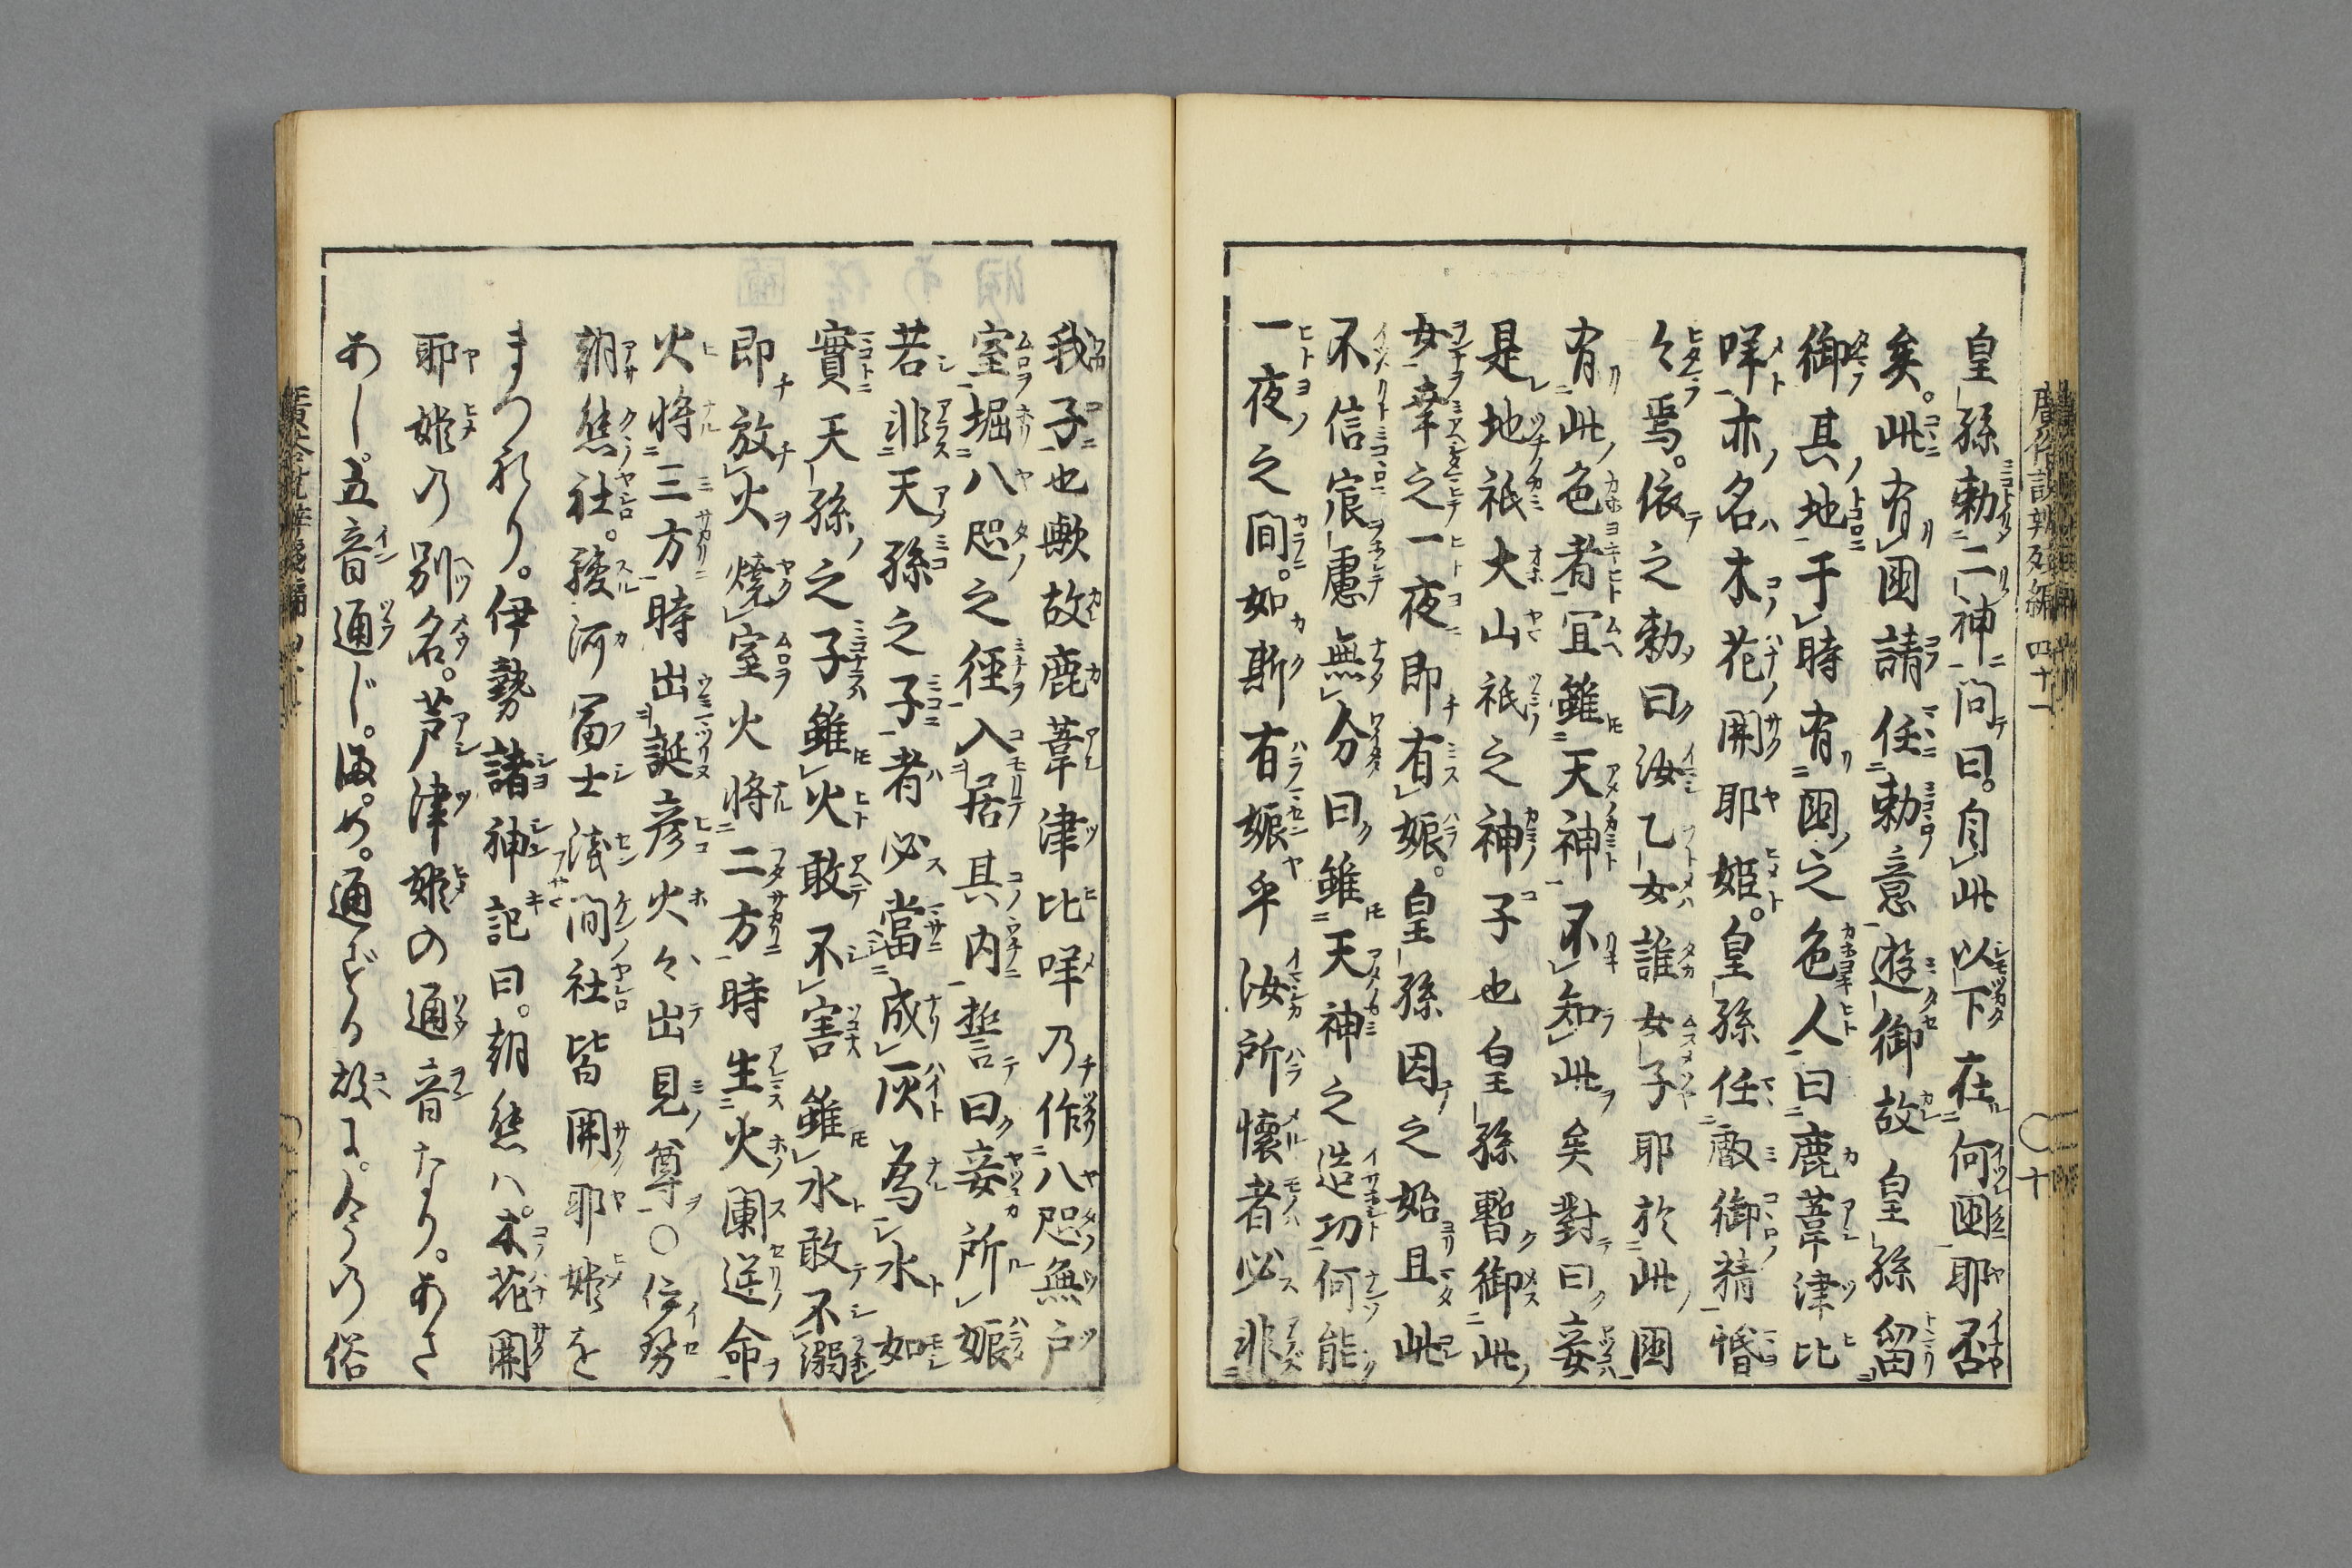 皇孫勅二神問曰。自此以下在何國耶否
矣。此有國請任勅意遊御故皇孫留
御其地于時有國之色人曰鹿葦津比
咩亦名木花開耶姫。皇孫任敵御精惛
々焉。依之勅曰汝乙女誰女子耶於此國
有此色者宜雖天神不知此矣對曰妾
是地祇大山祇之神子也皇孫暫御此
女幸之一夜即有娠。皇孫因之始且此
不信宸慮無分曰雖天神之造功何能
一夜之間。如斯有娠乎汝所懐者必非
我子也歟故鹿葦津比咩乃作八咫無戸
室堀八咫之徑入居其内誓曰妾所娠
若非天孫之子者必當成灰為水如
實天孫之子雖火敢不害雖水敢不溺
即放火燒室火將二方時生火闌逆命
火將三方時出誕彦火々出見尊○伊勢
朝熊社。駿河冨士淺間社皆開耶姫を
まつれり。伊勢諸神記曰。朝熊ハ。木花開
耶姫乃別名。芦津姫の通音なり。あさ
あし。五音通じ。満。め。通ずる故に。今乃俗